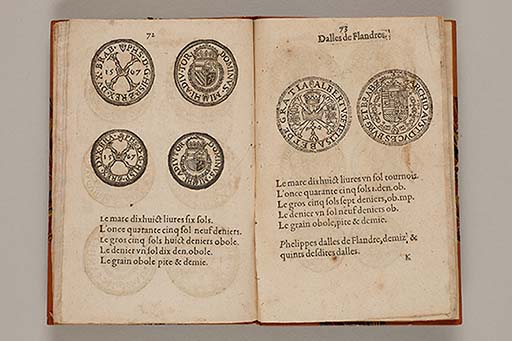 72
PHS·D·G·HISP·REX·DVX·BRAB
15 67
DOMINVS·MIHI·ADIVTOR
15 67
DOMINVS·MIHI
ADIVTOR
Le marc dixhuict liures six sols.
L'once quarante cinq sol neuf deniers.
Le gros cinq sols huict deniers obole.
Le denier vn sol dix den. obole.
Le grain obole pite & demie.
73
Dalles de Flandres.
ALBERTVS·ET·ELISABET·DEI·GRATIA
ARCHIDVCES
Le marc dixhuict liures vn sol tournois.
L'once quarante cinq sols 1. den. ob.
Le gros cinq sols sept deniers, ob. mp.
Le denier vn sol neuf deniers ob.
Le grain obole, pite & demie.
Phelippes dalles de Flandre, demiz, &
quints desdites dalles.
K